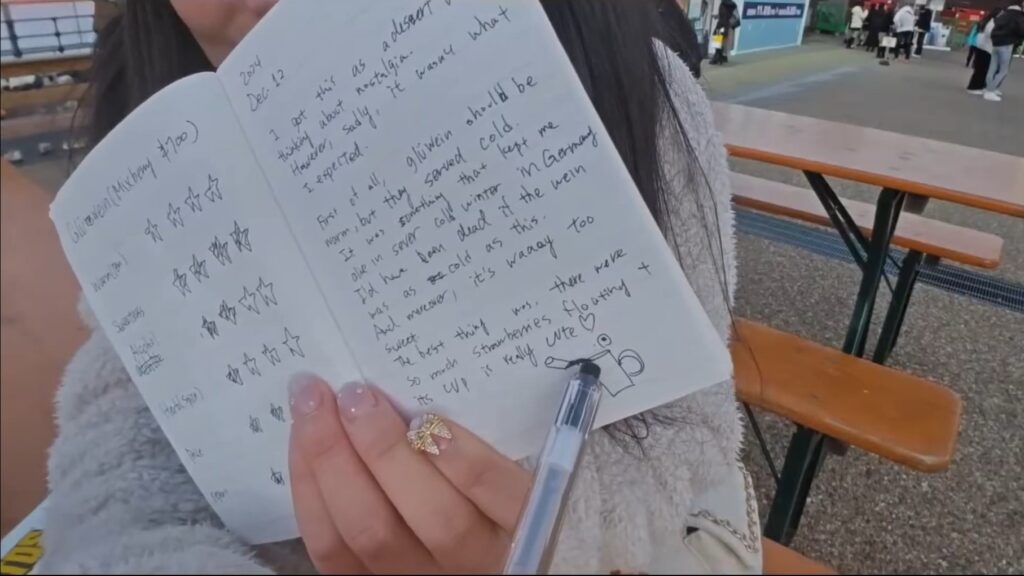 Glühwein (Mixberry ¥1700)
Sweetness
Price
2024
Dec 12
I got this as a dessert
thinking about nostalgia.
However, sadly, it wasn't what
I expected.
First of all, glüwein should be
warm, but they served cold.
It was something that kept me
alive in sever cold winter in Germany
I'd have been dead if the wein
was as cold as this.
And moreover, it's waaay too
sweet
The best thing was, there were
so much strawberries floating +
its cup is really cute ♡